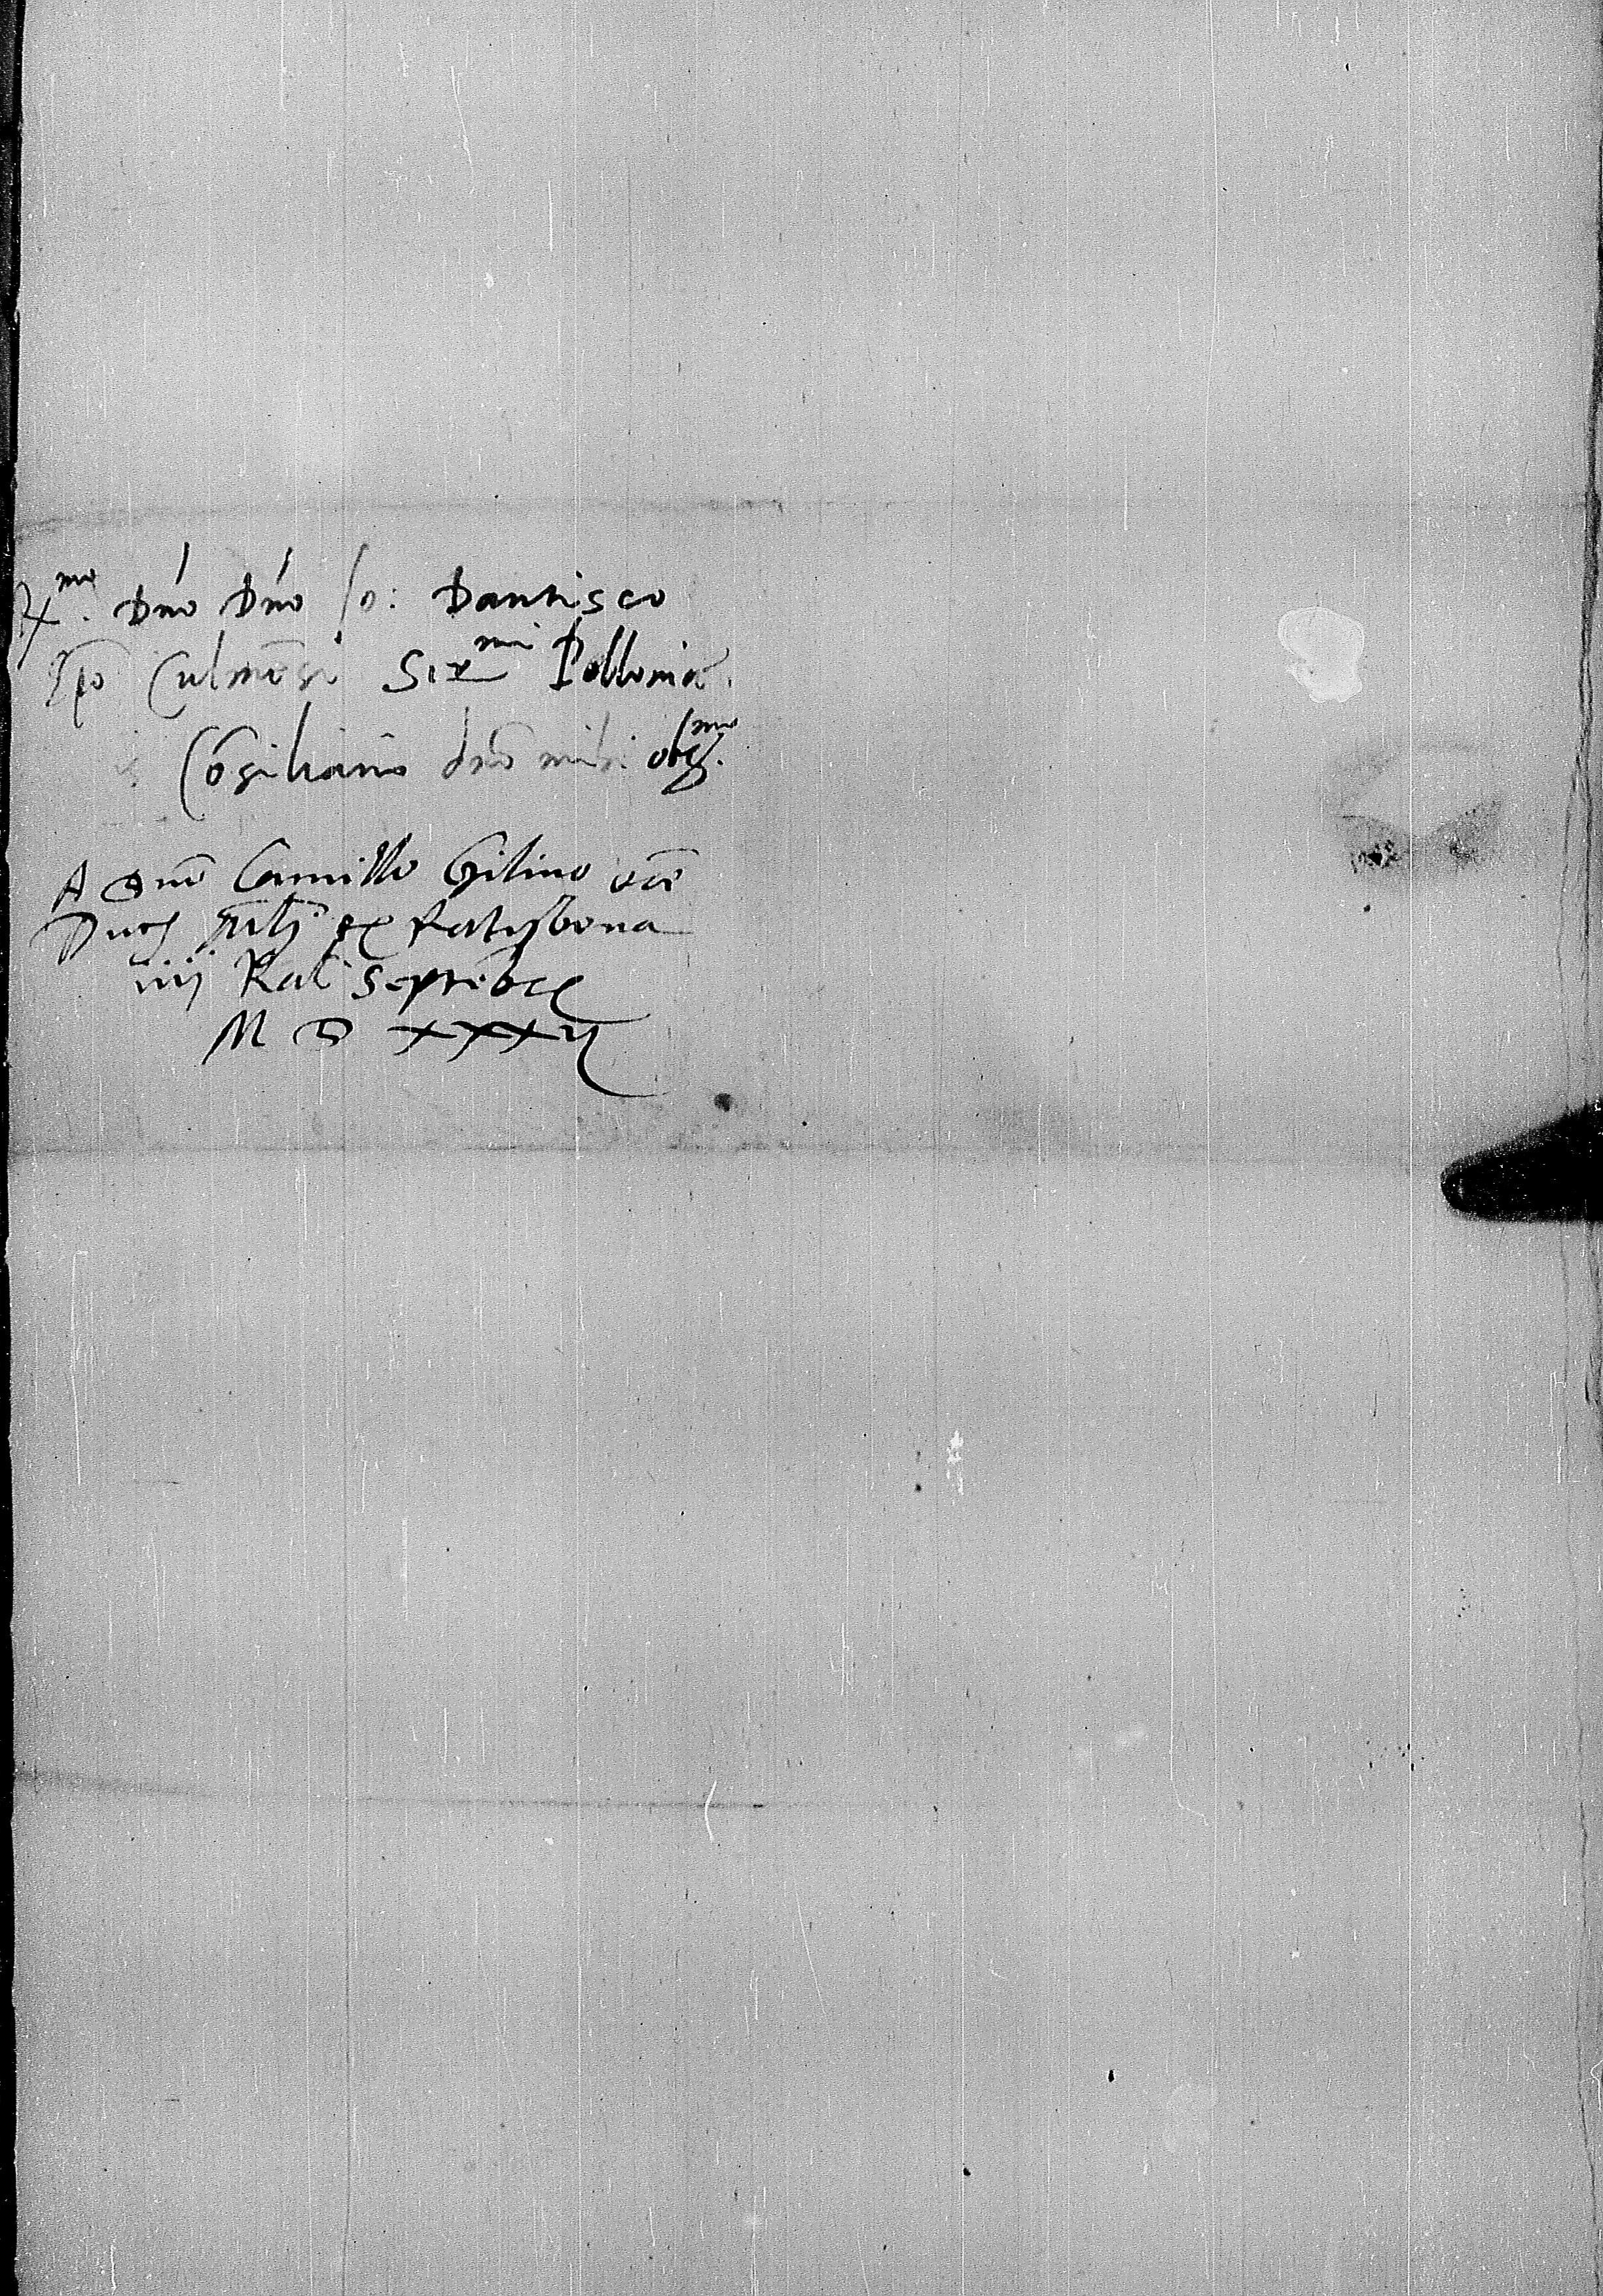 R.mo Dno Dno Io: Dantisco
Epo Culmēsi Ser.mi Pollonie
Cōsiliario dno mihi obs.mo
A Dno Camillo Gilino
Ducis ex Ratisbona
iiij Kal Septēbris
M D XXXij